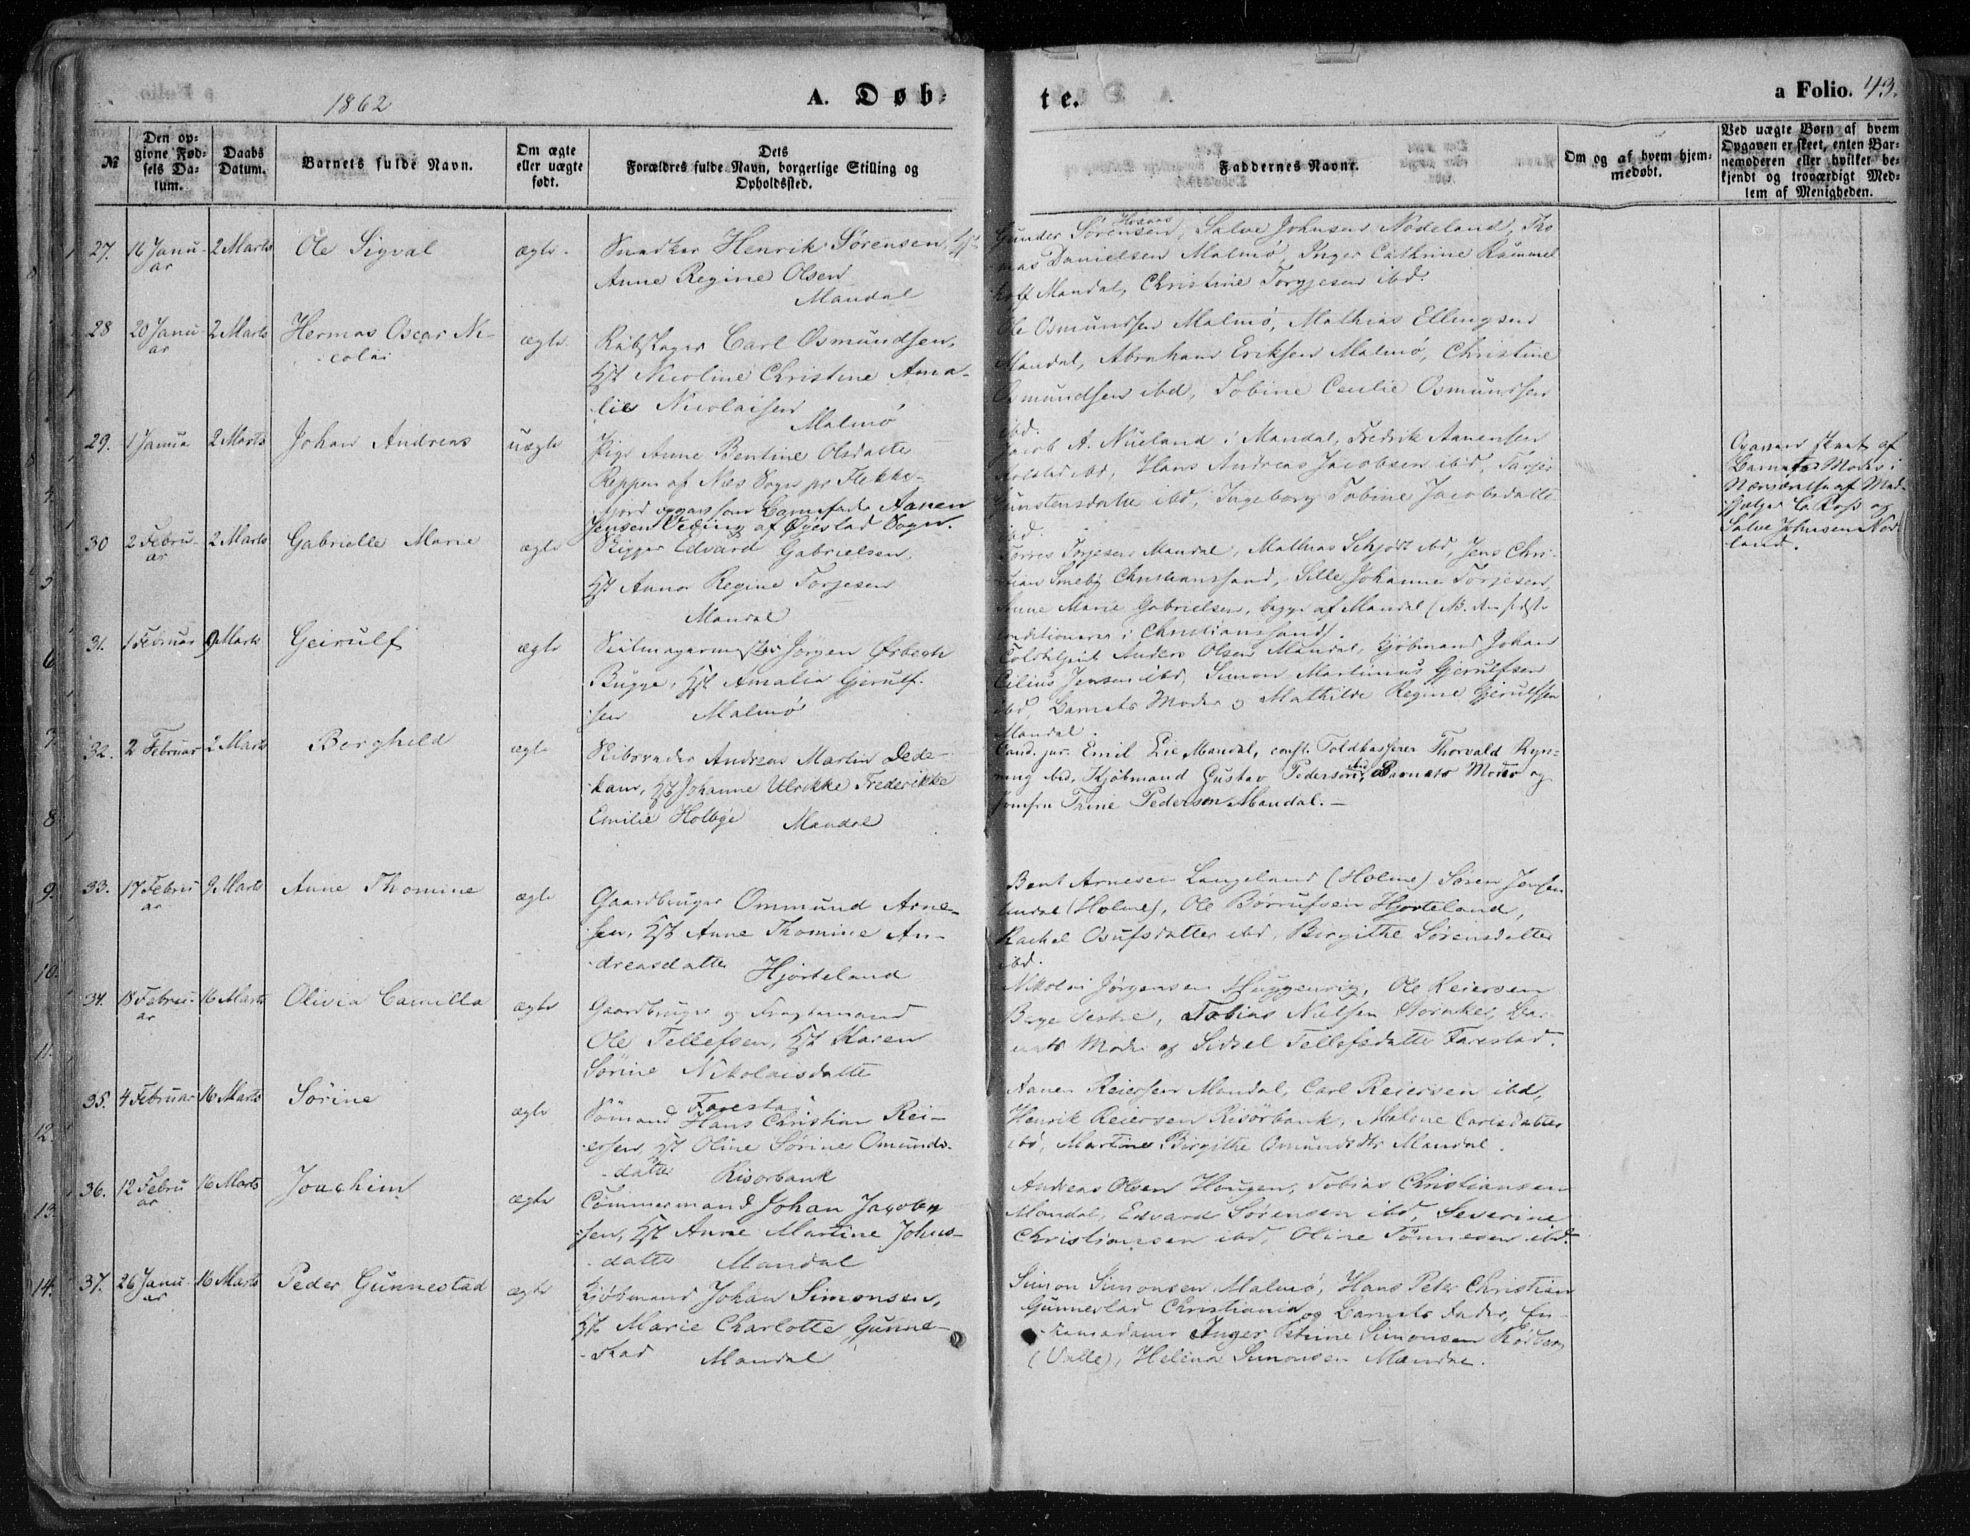 1862
A. Døb-
te.
a Folio. 43.
№
Den op-
givne Fød-
sels Da-
tum.
Daabs
Datum.
Barnets fulde Navn.
Om ægte
eller uægte
født.
Dets
Forældres fulde Navn, borgerlige Stilling og
Opholdssted.
Faddernes Navne.
Om og af hvem hjem-
medøbt.
Ved uægte Børn af hvem
Opgaven er skeet, enten Bar-
nemoderen eller hvilket be-
kjendt og troværdigt Med-
lem af Menigheden.
27. 16 Janu-
ar
2 Marts
Ole Sigval
ægte.
Snedker Henrik Sørensen,
Anne Regine Olsen
Mandal
Gunder Sørensen, Salve Johnsen Nodeland, Tho
mas Danielsen Malmø, Inger Cathrine Rømmel
hoff Mandal, Christine Torgjesen ibd.
28 20 Janu
ar
2 Marts
Herman Oscar Ni-
colai
ægte.
Rebslager Carl Osmundsen,
Hst Nicoline Christine Ama-
lie Nicolaisen
Malmø
Ole Osmundsen Malmø, Mathias Ellingsen
Mandal, Abraham Eriksen Malmø, Christine
Osmundsen ibd, Tobine Cecilie Osmundsen
ibd.
29. 1 Janua
2 Marts
Johan Andreas
uægte
Pige Anne Bentine Olsdatter
Reppen af Næs Sogn pr Flekke-
fjord opgav som Barnefader Aanen
Jensen Veding af Øiestad Sogn.
Jacob A. Nueland i Mandal, Fredrik Aanensen
Holstad ibd, Hans Andreas Jacobsen ibd, Tarjer
Gunstensdatter ibd, Ingeborg Tobine Jacobsdatter
ibd.
Opgaven skeet af
Barnets Moder i
Nærværelse af Med-
hjelper C. Ross og
Salve Johnsen Nod-
land.
30 2 Febru-
ar
2 Marts
Gabrielle Marie
ægte
Rigger Edvard Gabrielsen,
Hst Anna Regine Torjesen
Mandal
Torres Torjesen Mandal, Mathias Schjødt ibd, Jens Chri-
stian Smeby Christianssand, Sille Johanne Torjesen,
Anne Marie Gabrielsen, begge af Mandal (NB. den sidste
conditionerer i Christianssand).
31. 1 Februar
9 Marts
Geirulf
ægte
Jørgen
Bugge, Hst Amalia Gjerulf-
sen Malmø
Anders Olsen Mandal, Kjøbmand Johan
Jensen ibd, Simon Martinus Gjerulfsen
ibd, Barnets Moder og Mathilde Regine Gjerulfsen
Mandal.
32. 2 Februar
2 Marts
Borghild
ægte
Skibsreder Andreas Martin Dede-
kam, Hst Johanne Ulrikke Frederikke
Emilie Holbye Mandal
Cand. jur. Emil Lie Mandal, const. Toldkasserer Thorvald Ryn-
ning ibd, Kjøbmand Gustav Pedersen ibd, Barnets Moder og
Jomfru Trine Pedersen Mandal. —
33. 17 Febru
ar
9 Marts
Anne Thomine
ægte
Gaardbruger Ommund Arne-
sen, Hst Anne Thomine An-
dreasdatter Hjorteland
Bent Arnesen Langeland (Holme) Søren Jensen
(Holme), Ole Børrufsen Hjorteland,
Rachel Osufsdatter ibd, Birgithe Sørensdatter
ibd.
34. 18 Febru-
ar
16 Marts
Olivia Camilla
ægte
Gaardbruger og Fragtemand
Ole Tellefsen, Hst Karen
Sørine Nikolaisdatter
Farestad
Nikolai Jørgensen Skuggevig, Ole Reiersen
Berge Vestre, Tobias Nielsen, Bar-
nets Moder og Sidsel Tellefsdatter Farestad.
35. 4 Februar
16 Marts
Sørine
ægte
Sømand Hans Christian Rei-
ersen, Hst Oline Sørine Omunds-
datter Risørbank
Aanen Reiersen Mandal, Carl Reiersen ibd,
Henrik Reiersen Risørbank, Malene Carlsdatter
ibd, Martine Birgithe Omundsdtr Mandal.
36. 12 Febru
ar
16 Marts
Joachim
ægte
Tømmermand Johan Jacob-
sen, Hst Anne Martine Johns-
datter Mandal
Andreas Olsen Hougen, Tobias Christiansen
Mandal, Edvard Sørensen ibd, Severine
Christiansen ibd, Oline Tønnesen ibd.
37. 26 Janu-
ar
16 Marts
Peder Gunnestad
ægte
Kjøbmand Johan Simonsen,
Hst Marie Charlotte Gunne-
stad Mandal
Simon Simonsen Malmø, Hans Peter Christian
Gunnestad Christiania og Barnets Fader, En-
kemadame Inger Petrine Simonsen
(Valle), Helena Simonsen Mandal.